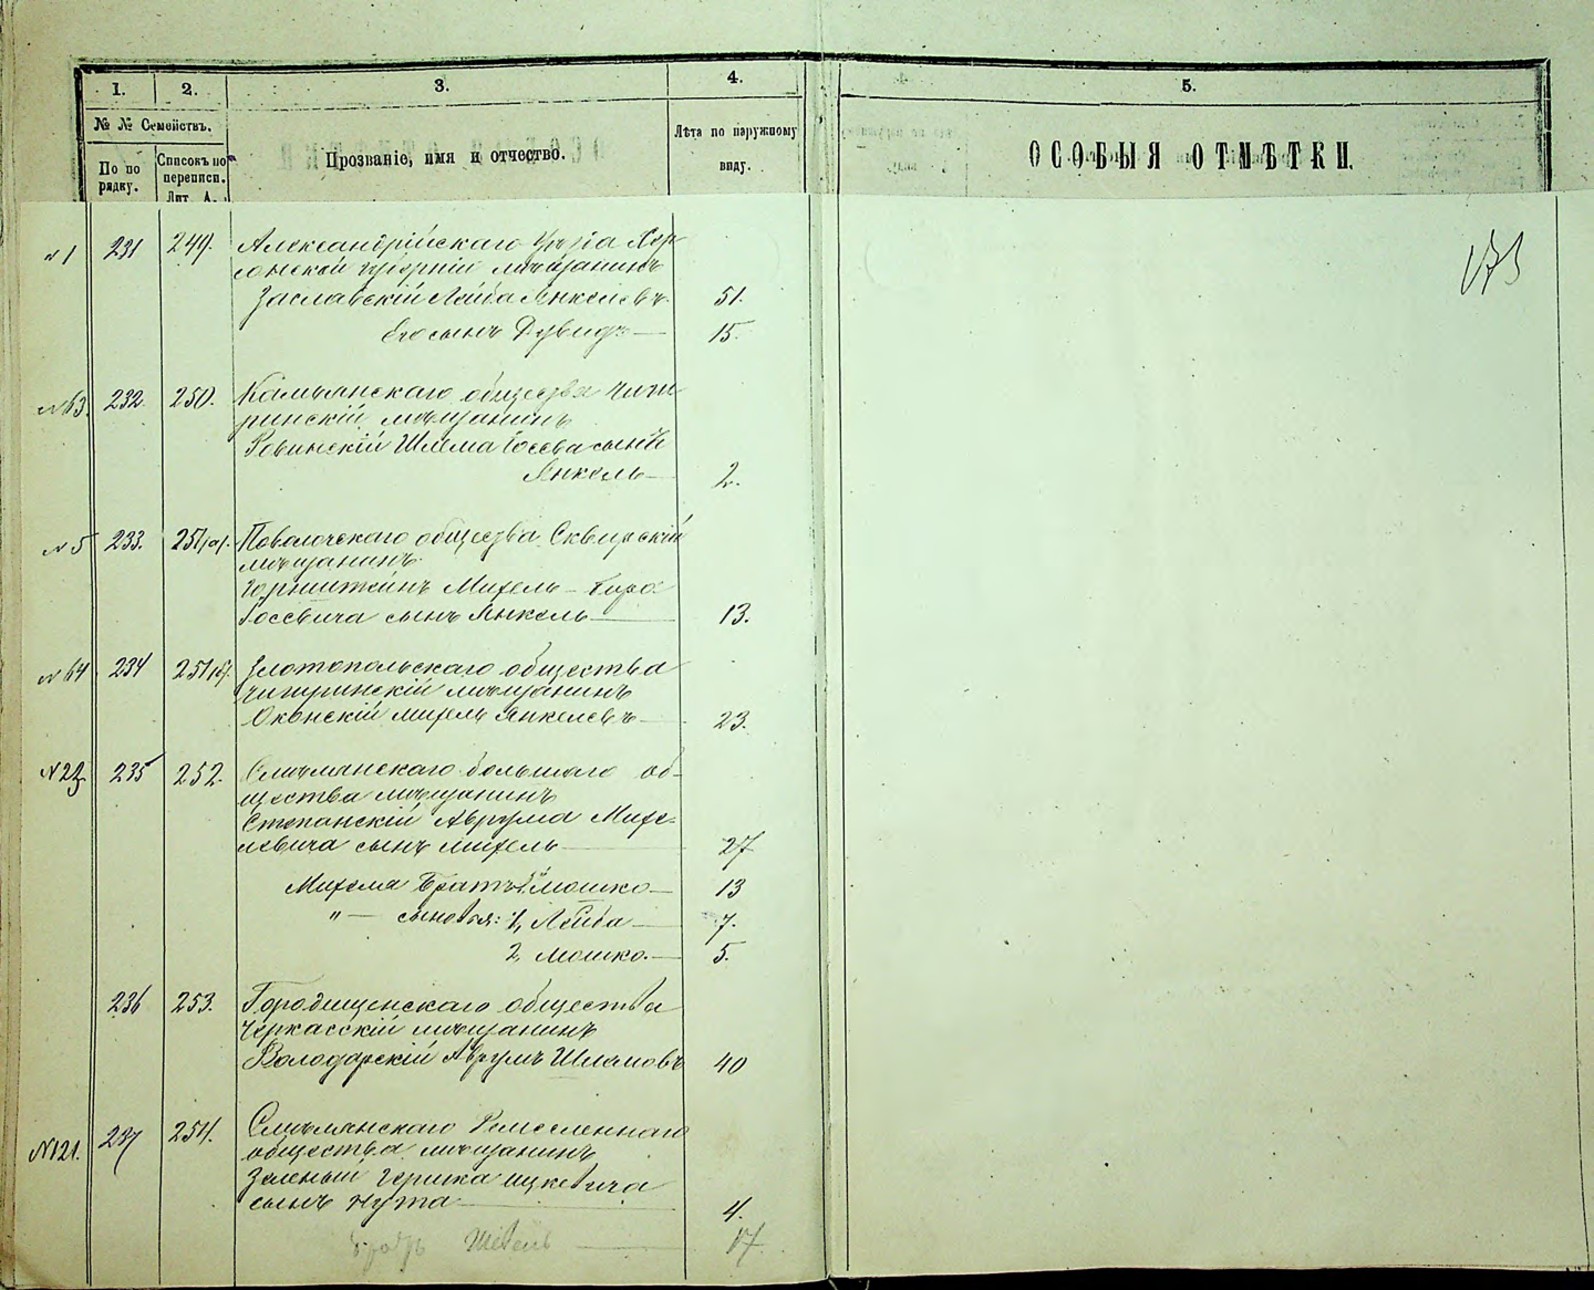 1. 2. 3. 4. 5.
№ № Семействъ.
По по рядку.
Списокъ по переписи. Лит. А.
Прозваніе, имя и отчество.
Лѣта по наружному виду.
ОСОБЫЯ ОТМѢТКИ.
173
№1 231 249. Александрійскаго Уѣзда Хер
сонской губерніи мѣщанинъ
Заславскій Лейба Янкелевъ 51.
Его сынъ Дувидъ 15.
№63. 232. 250. Камьянскаго общества Чиги
ринскій мѣщанинъ
Ровинскій Шлема Іосева сынъ
Янкель 2.
№5 233. 251/а/. Паволочскаго общества Сквирскій
мѣщанинъ
Горнштейнъ Михель-
Іосевича сынъ Янкель 13.
№64 234 251/б/. Златопольскаго общества
Чигиринскій мѣщанинъ
Оконскій Михель Янкелевъ 23.
№22 235 252. Смѣлянскаго большаго об-
щества мѣщанинъ
Степанскій Аврума Михе-
левича сынъ Михель 27
Михеля Братъ Мошко 13
"— сыновья: 1, Лейба 7.
2, Мошко. 5.
236 253. Городищенскаго общества
Черкасскій мѣщанинъ
Володарскій Аврумъ Шлямовъ 40
№121. 237 254. Смѣлянскаго Ремесленнаго
общества мѣщанинъ
Зеленый Гершка Ицкевича
сынъ Нута 4.
братъ 17.